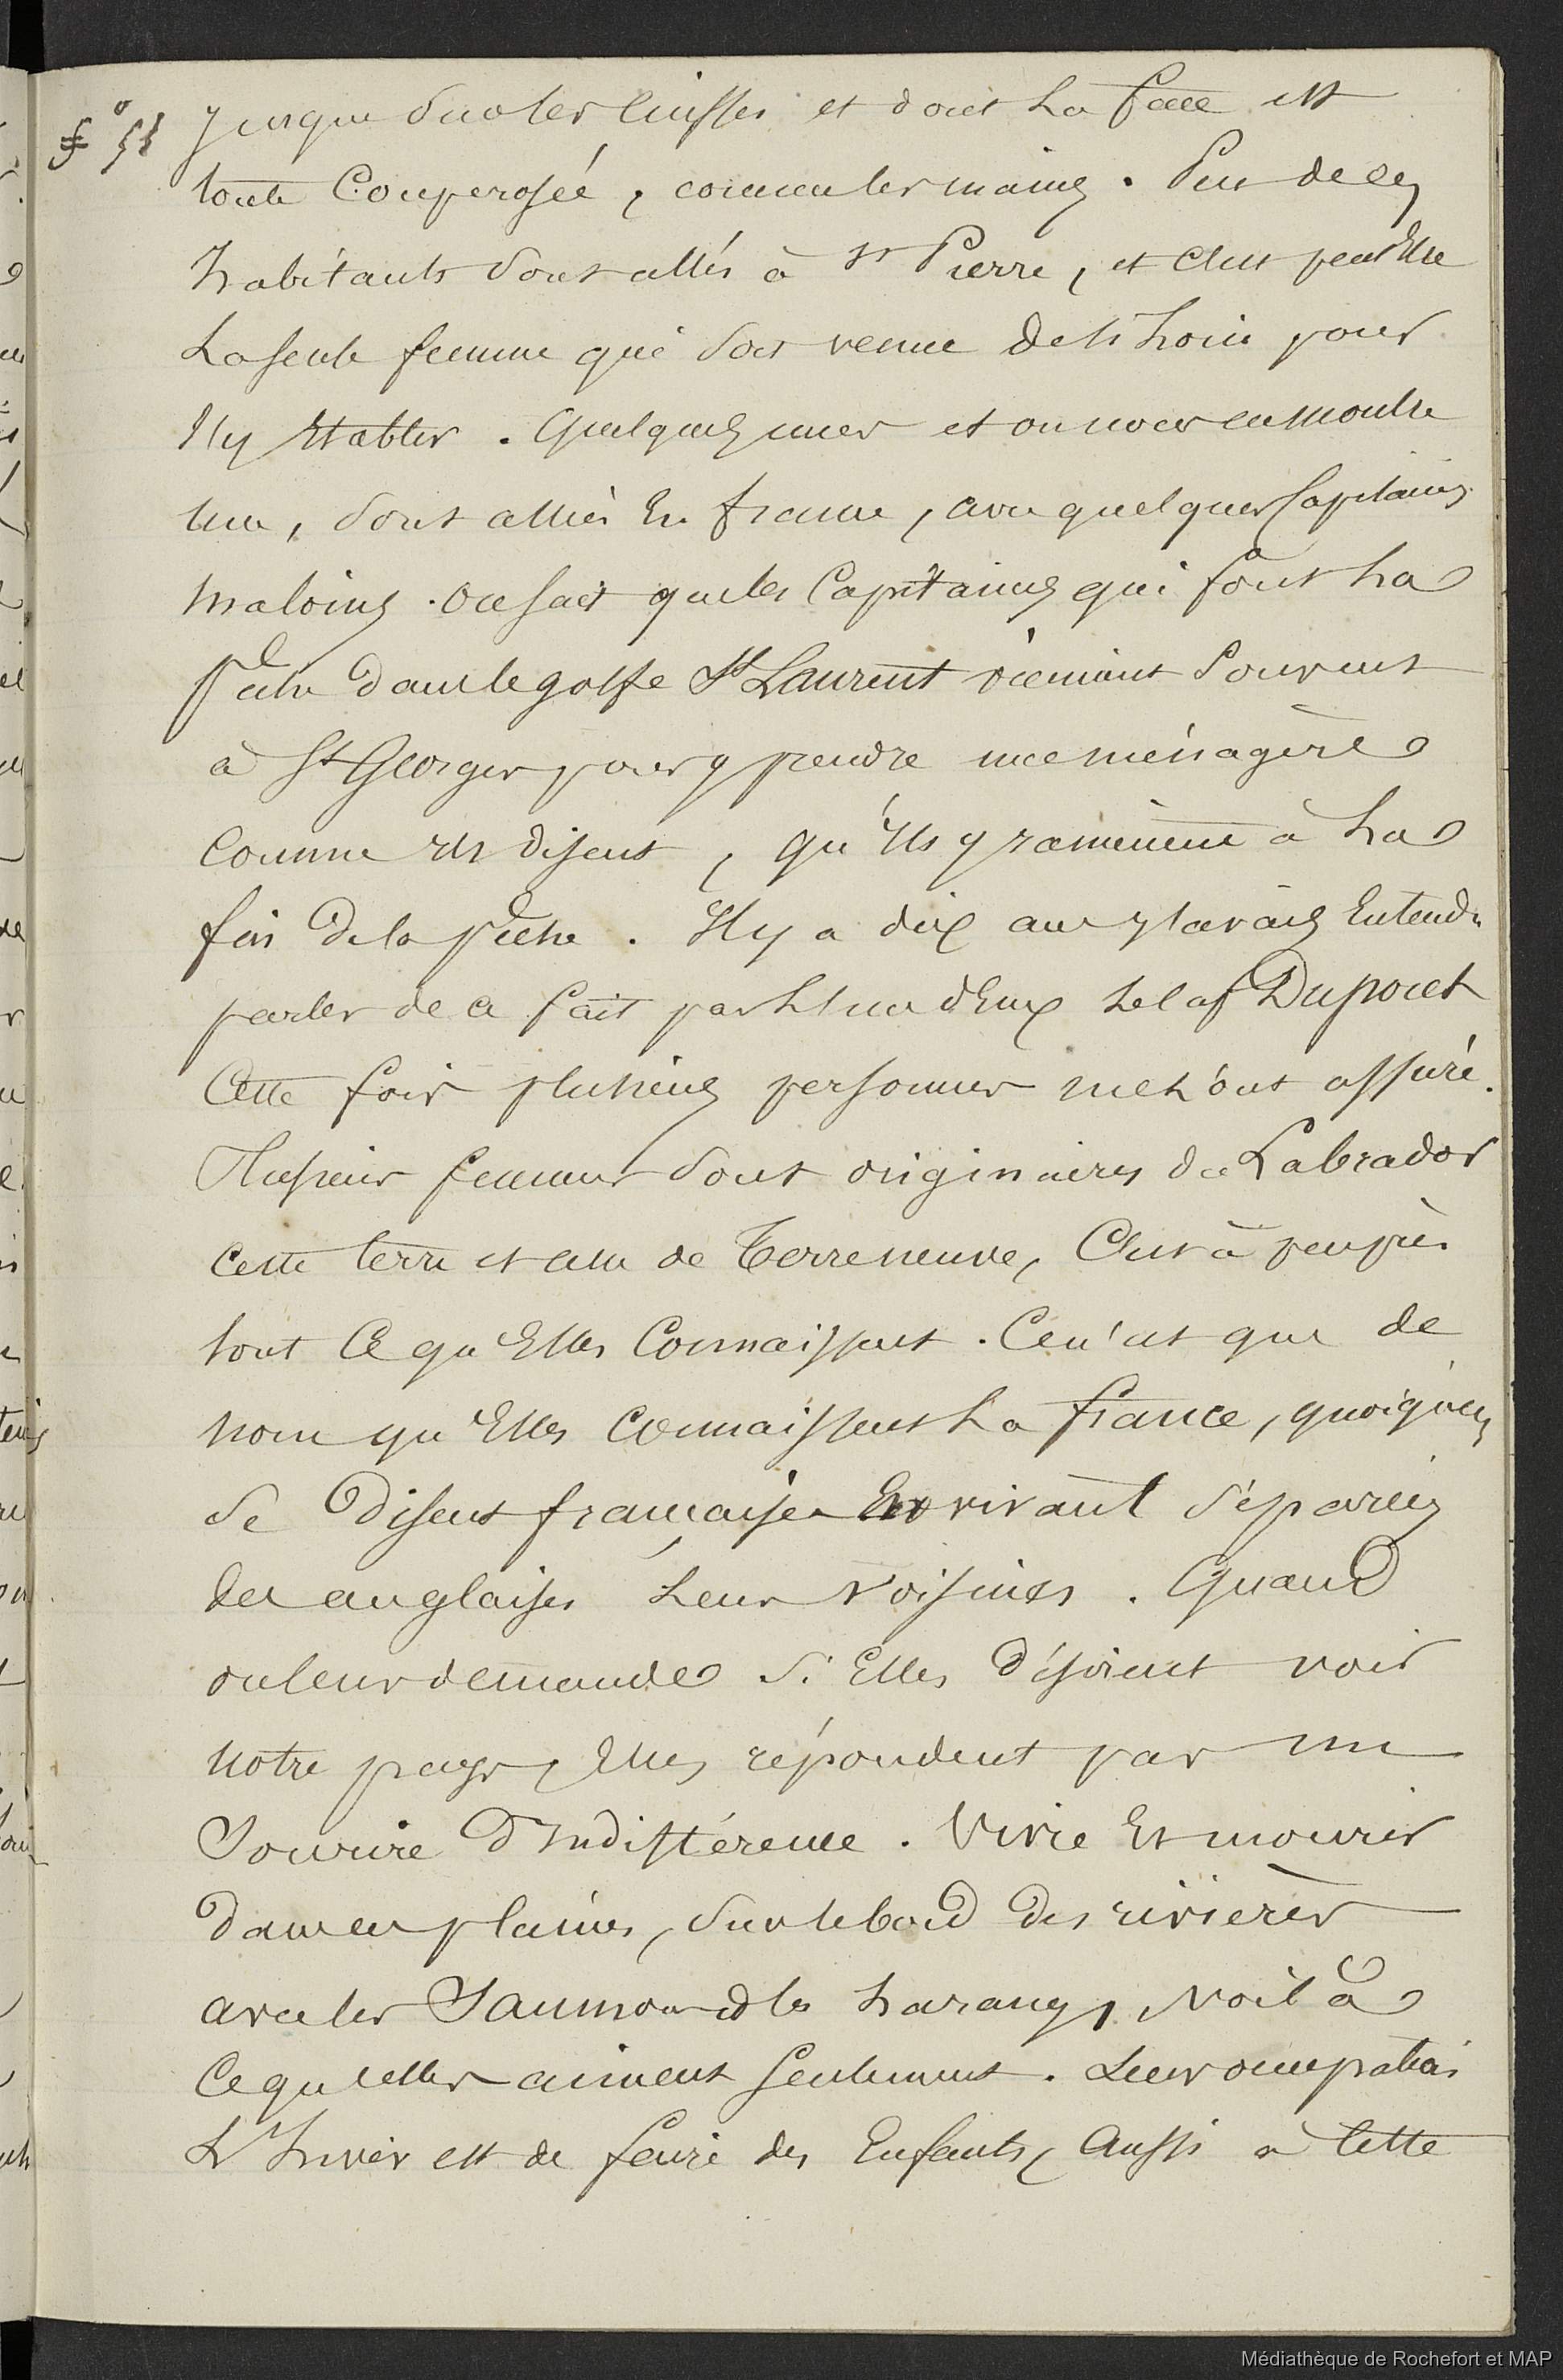 f° 51
jusque sur les cuisses et dont la face est
toute Couperosée, comme les mains. Peu de ces
habitants sont allés à St Pierre, et c'est peut être
La seule femme qui soit venue de si Loin pour
s'y établir. Quelques unes et on nous en montre
une, sont allées En france, avec quelques Capitaines
malouins. On sait que les Capitaines qui font La
Pêche dans le golfe St Laurent viennent Souvent
à St Georges pour y prendre une ménagère
Comme ils disent, qu'ils y ramènent à La
fin de la pêche. Il y a dix ans j'avais Entendu
parler de ce fait par L'un d'Eux Dupont
Cette fois plusieurs personnes me L'ont assuré.
Plusieurs femmes sont originaires du Labrador
Cette terre et celle de Terreneuve, C'est à peu près
tout Ce qu'Elles Connaissent. Ce n'est que de
nom qu'Elles Connaissent La france, quoiqu'en
se Disent françaises En vivant séparées
des anglaises Leurs Voisines. Quand
on leur demande si Elles désirent voir
notre pays, Elles répondent par un
Sourire d'Indifférence. Vivre Et mourir
dans ces plaines, sur le bord des rivières
avec les Saumons et les harangs, Voilà
Ce qu'elles aiment Seulement. Leur occupation
L'hiver est de faire des Enfants, Aussi à cette
Médiathèque de Rochefort et MAP